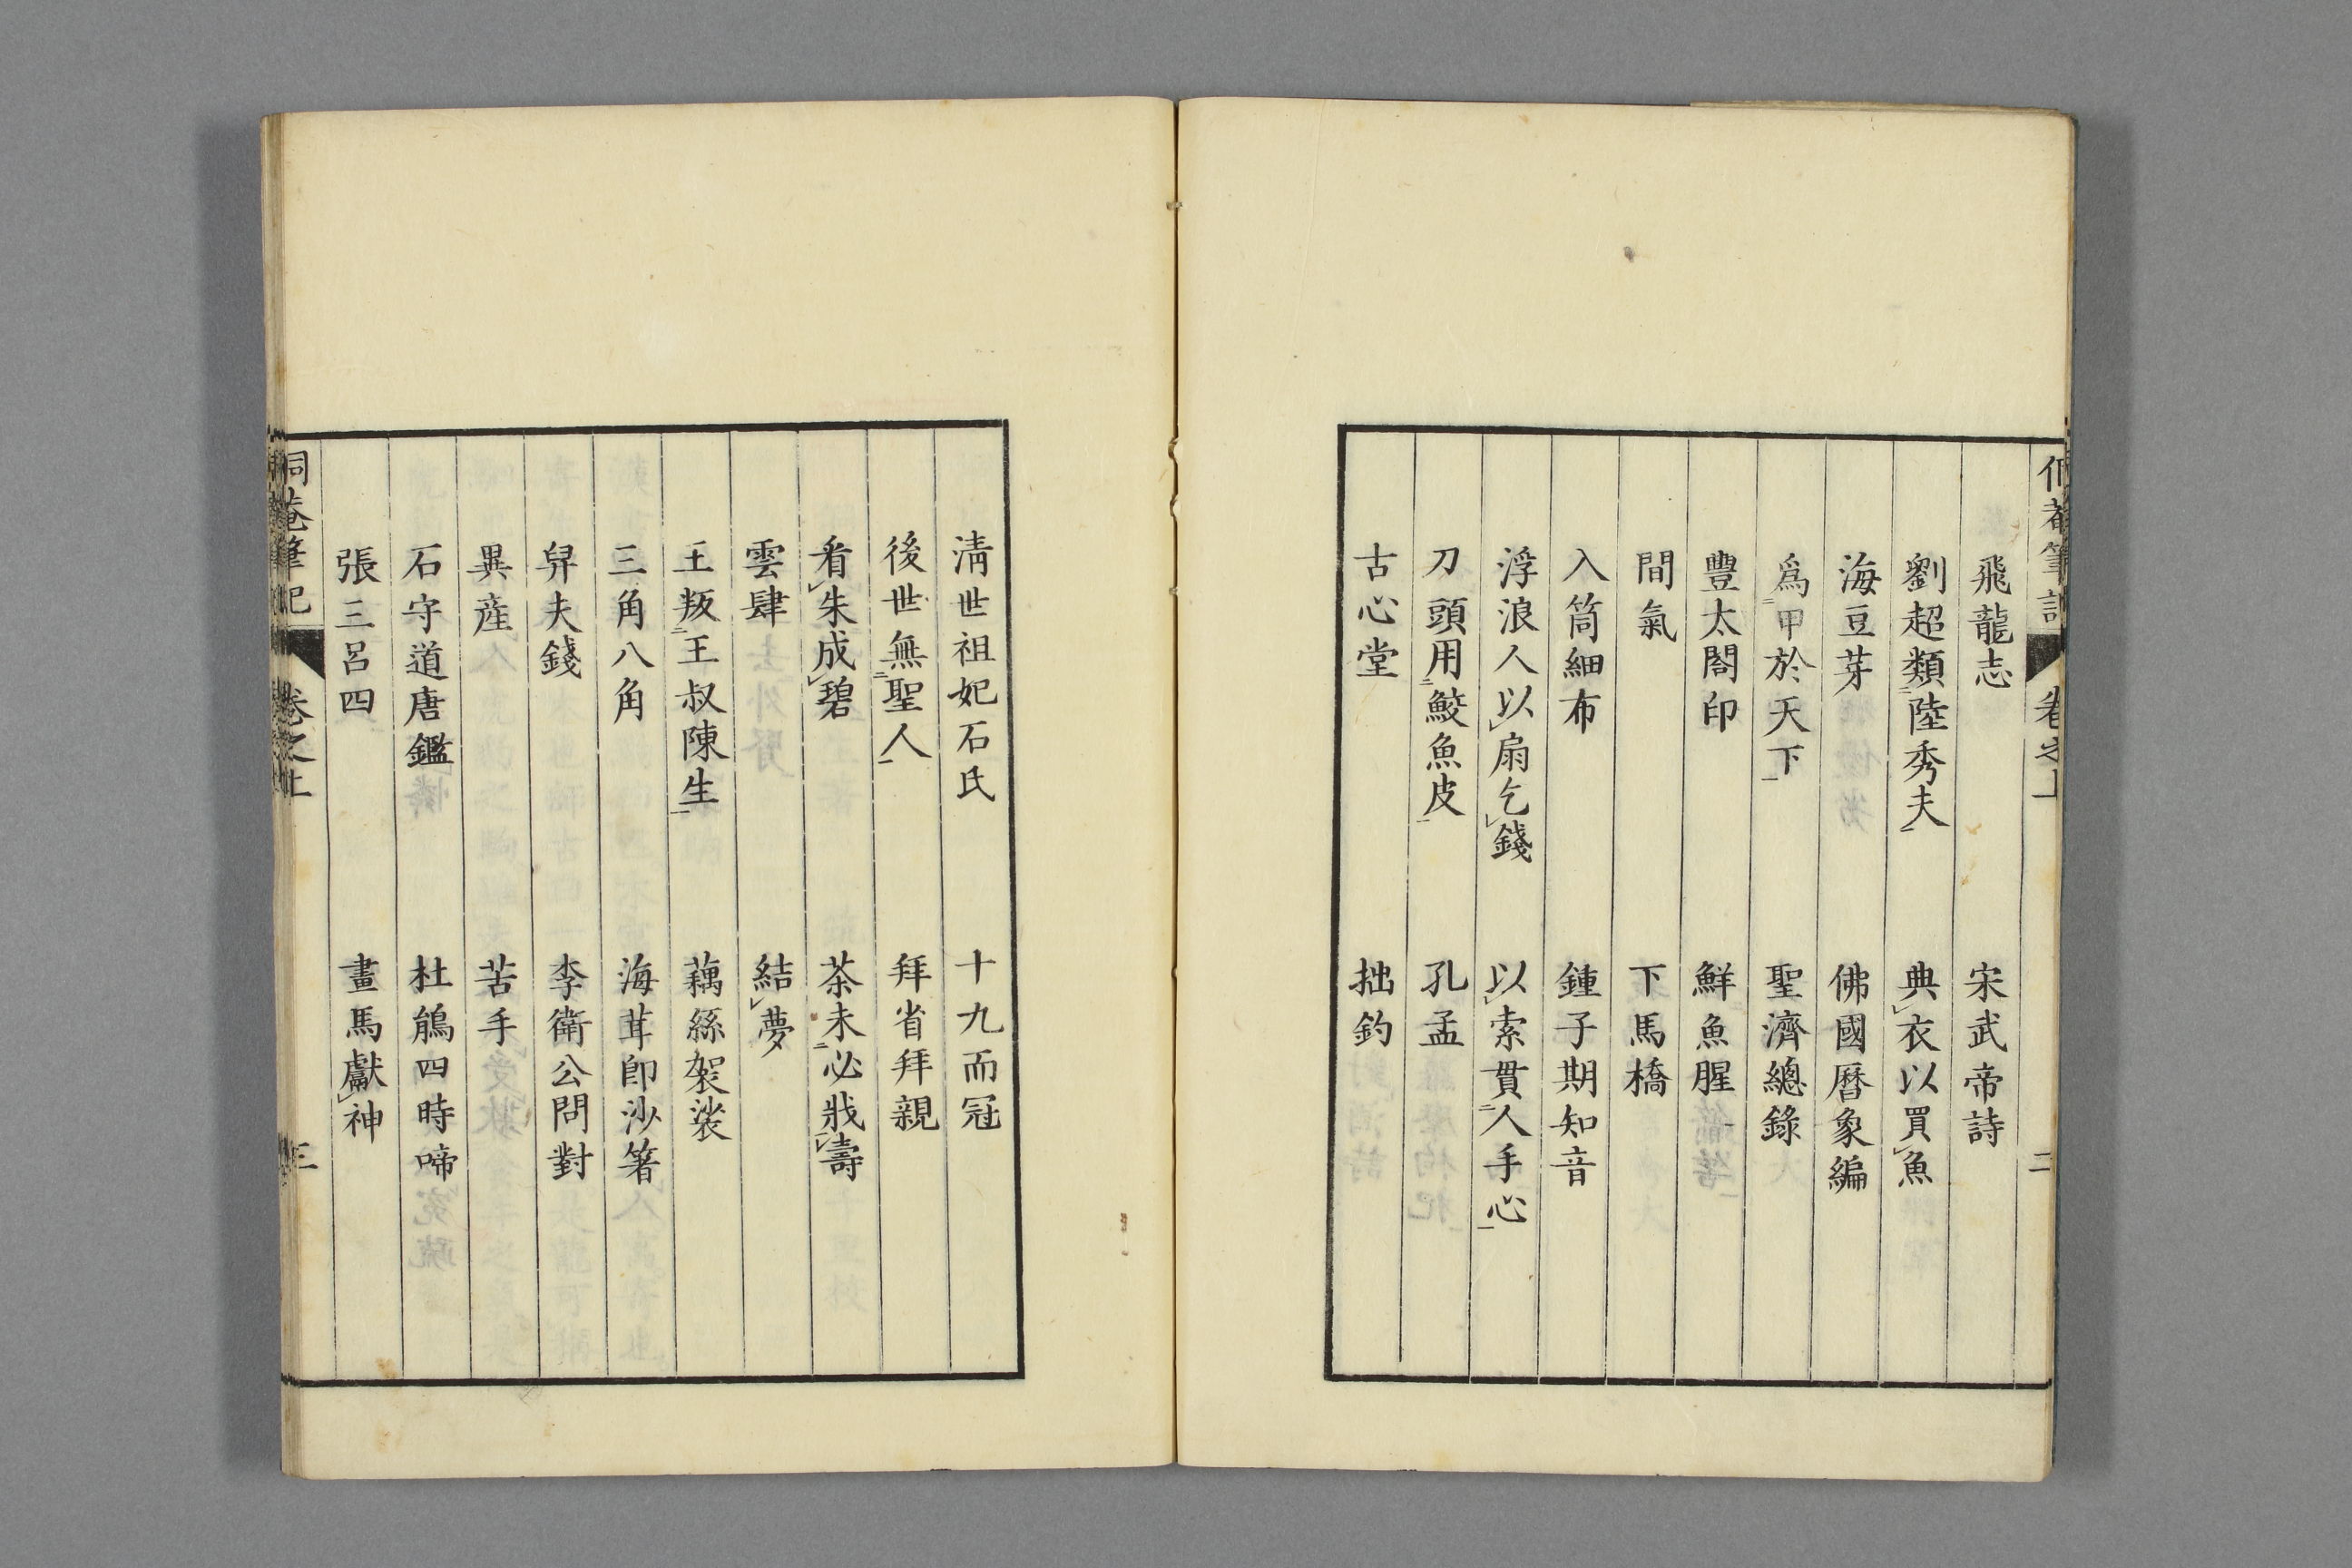 飛龍志　宋武帝詩
劉超類陸秀夫　典衣以買魚
海豆芽　佛國曆象編
爲甲於天下　聖濟總錄
豐太閤印　鮮魚腥
間氣　下馬橋
入筒細布　鍾子期知音
浮浪人以扇乞錢　以索貫人手心
刀頭用鮫魚皮　孔孟
古心堂　拙釣
淸世祖妃石氏　十九而冠
後世無聖人　拜省拜親
看朱成碧　茶未必戕壽
雲肆　結夢
王叛王叔陳生　藕絲袈裟
三角八角　海茸卽沙箸
舁夫錢　李衛公問對
異產　苦手
石守道唐鑑　杜鵑四時啼
張三呂四　畫馬獻神
侗菴筆記　卷之上　三